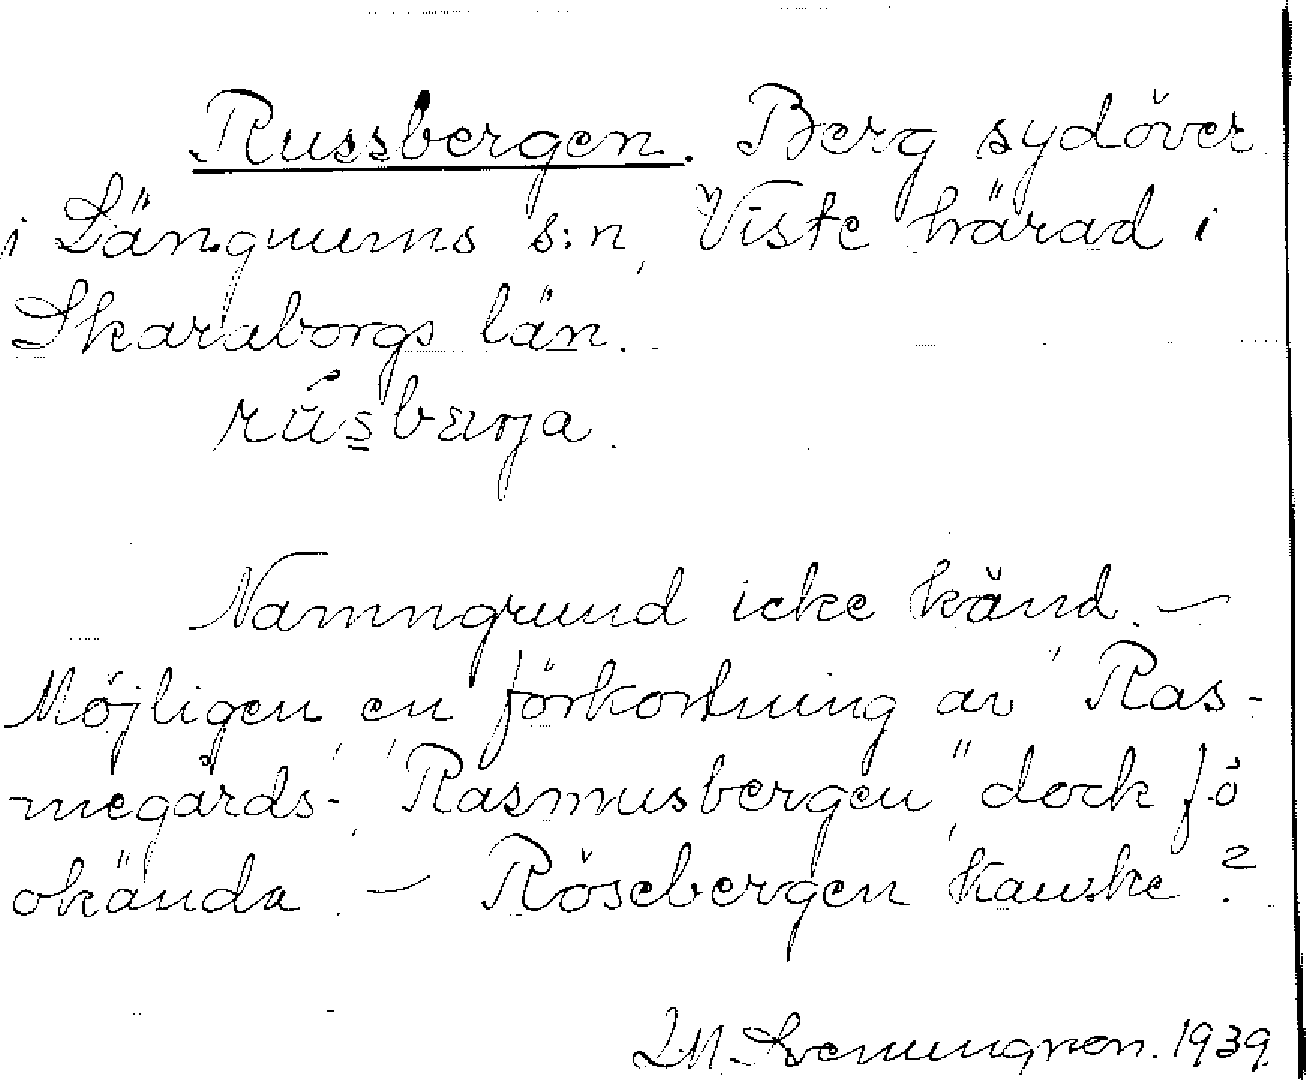 Russbergen. Berg sydöver
i Längnums s:n, Viste härad i
Skaraborgs län.
rúsbærja.
Namngrund icke känd. —
Möjligen en förkortning av "Ras-
megårds-", "Rasmusbergen", dock f.ö
okända. — Rösebergen kanske?
1939